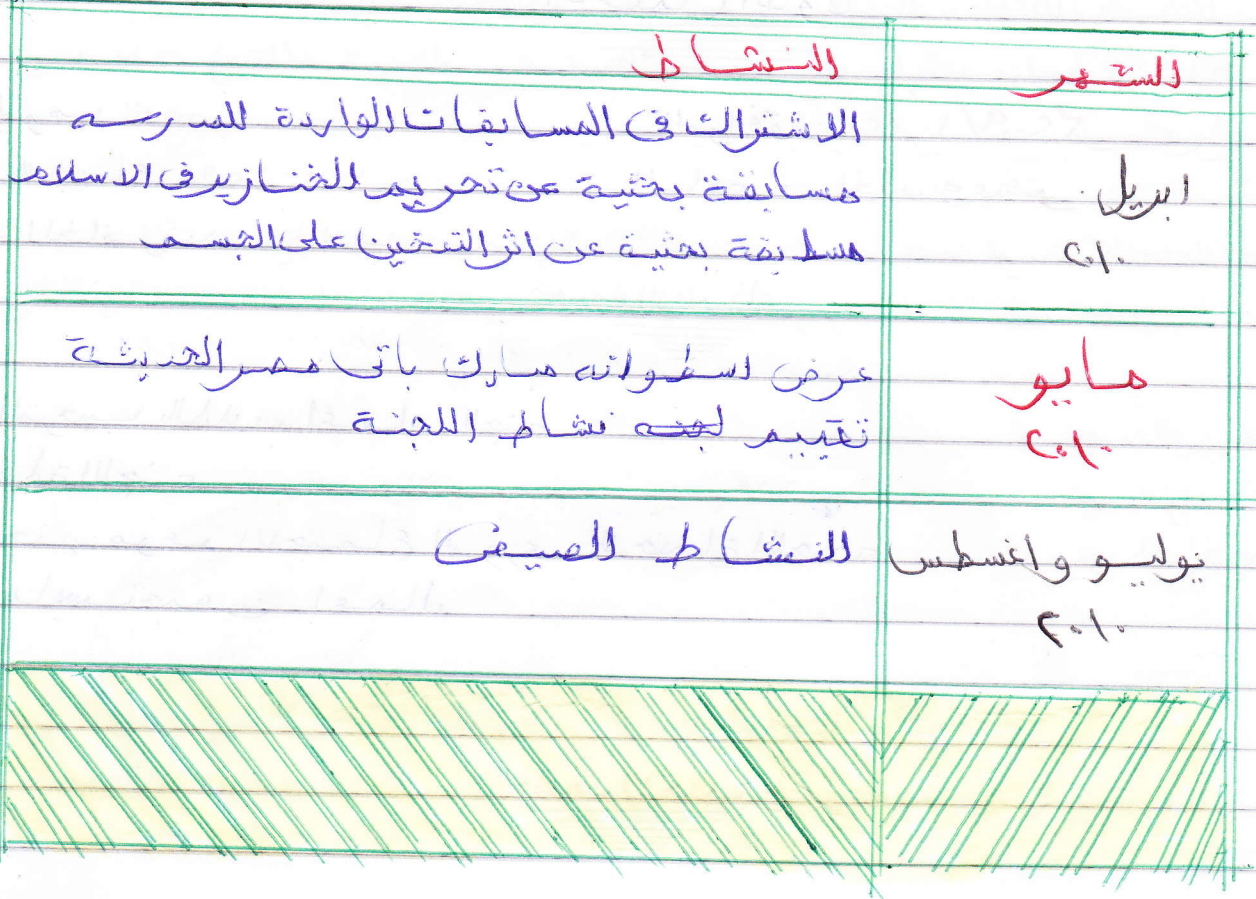 الشهر
النشاط
ابريل
٢٠١٠
الاشتراك فى المسابقات الواردة للمدرسه
مسابقة بحثية عن تحريم الخنازير فى الاسلام
مسابقة بحثية عن اثر التدخين على الجسم
مايو
٢٠١٠
عرض اسطوانه مبارك بانى مصر الحديثة
تقييم لجنه نشاط اللجنة
يوليو واغسطس
٢٠١٠
النشاط الصيفى